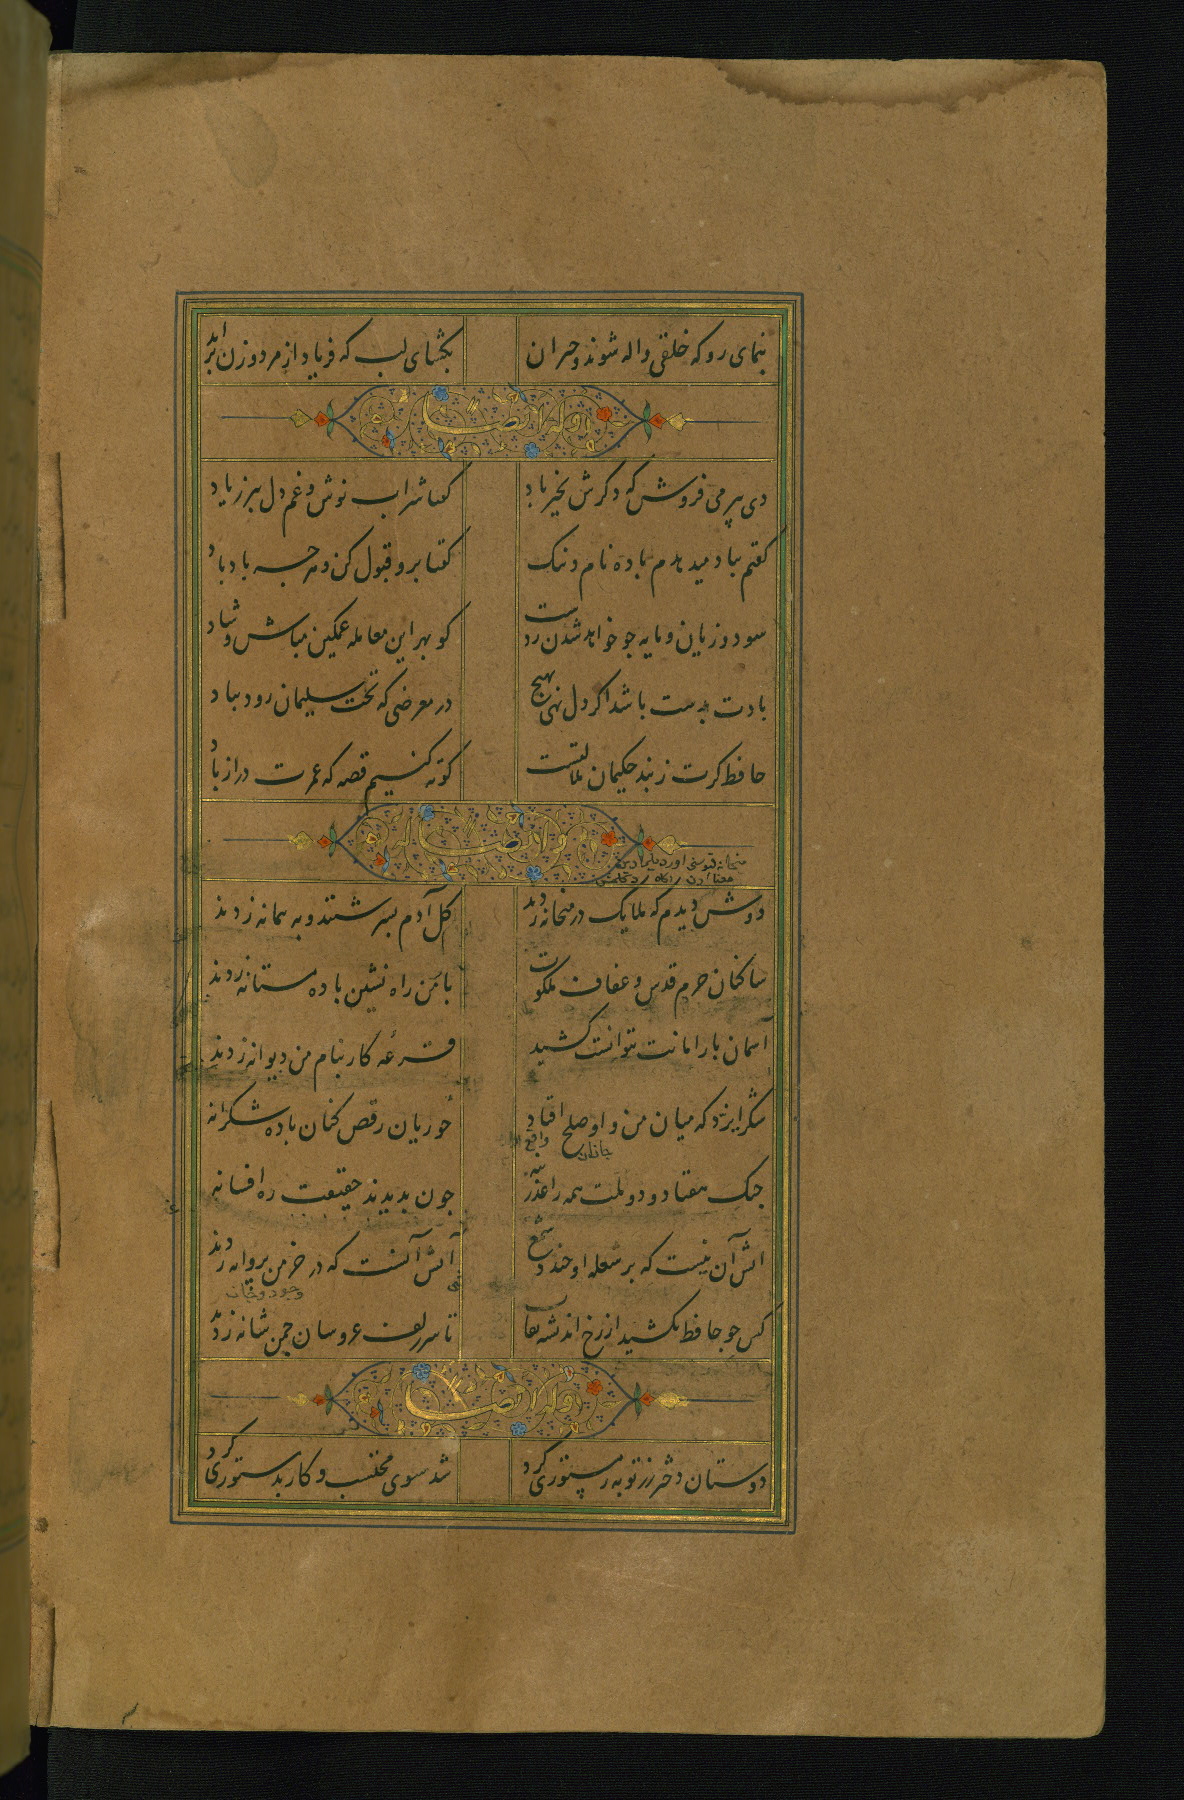 بنمای رو که خلقی واله شوند و حیران بکشای لب که فریاد از مرد و زن برآید
وله ایضا
دی پیر می فروش که ذکرش بخیر باد کفتا شراب نوش و غم دل ببر ز یاد
کفتم بباد میدهدم باده نام و ننک کفتا برو قبول کن و هرچه باد باد
سود و زیان و مایه جو خواهد شدن ز دست کو بهر این معامله غمکین مباش و شاد
بادت بدست باشد اکر دل نهی بهیچ در معرضی که تخت سلیمان رود بباد
حافظ کرت ز پند حکیمان ملالتست کوته کنیم قصه که عمرت دراز باد
وله ایضا
دوش دیدم که ملایک در میخانه زدند کل آدم بسرشتند و به پیمانه زدند
ساکنان حرم قدس و عفاف ملکوت با من راه نشین باده مستانه زدند
آسمان بار امانت نتوانست کشید قرعه کار بنام من دیوانه زدند
شکر ایزد که میان من و او صلح افتاد حوریان رقص کنان باده شکرانه
جانان واقع
جنک هفتاد و دو ملت همه را عذر بنه جون بدیدند حقیقت ره افسانه
اتش آن نیست که بر شعله او خندد شمع آتش آنست که در خرمن پروانه زدند
کس جو حافظ نکشید از رخ اندیشه نقاب تا سر زلف عروسان جمن شانه زدند
وله ایضا
دوستان دختر رز توبه ز مستوری کرد شد سوی محتسب و کار بدستوری کرد